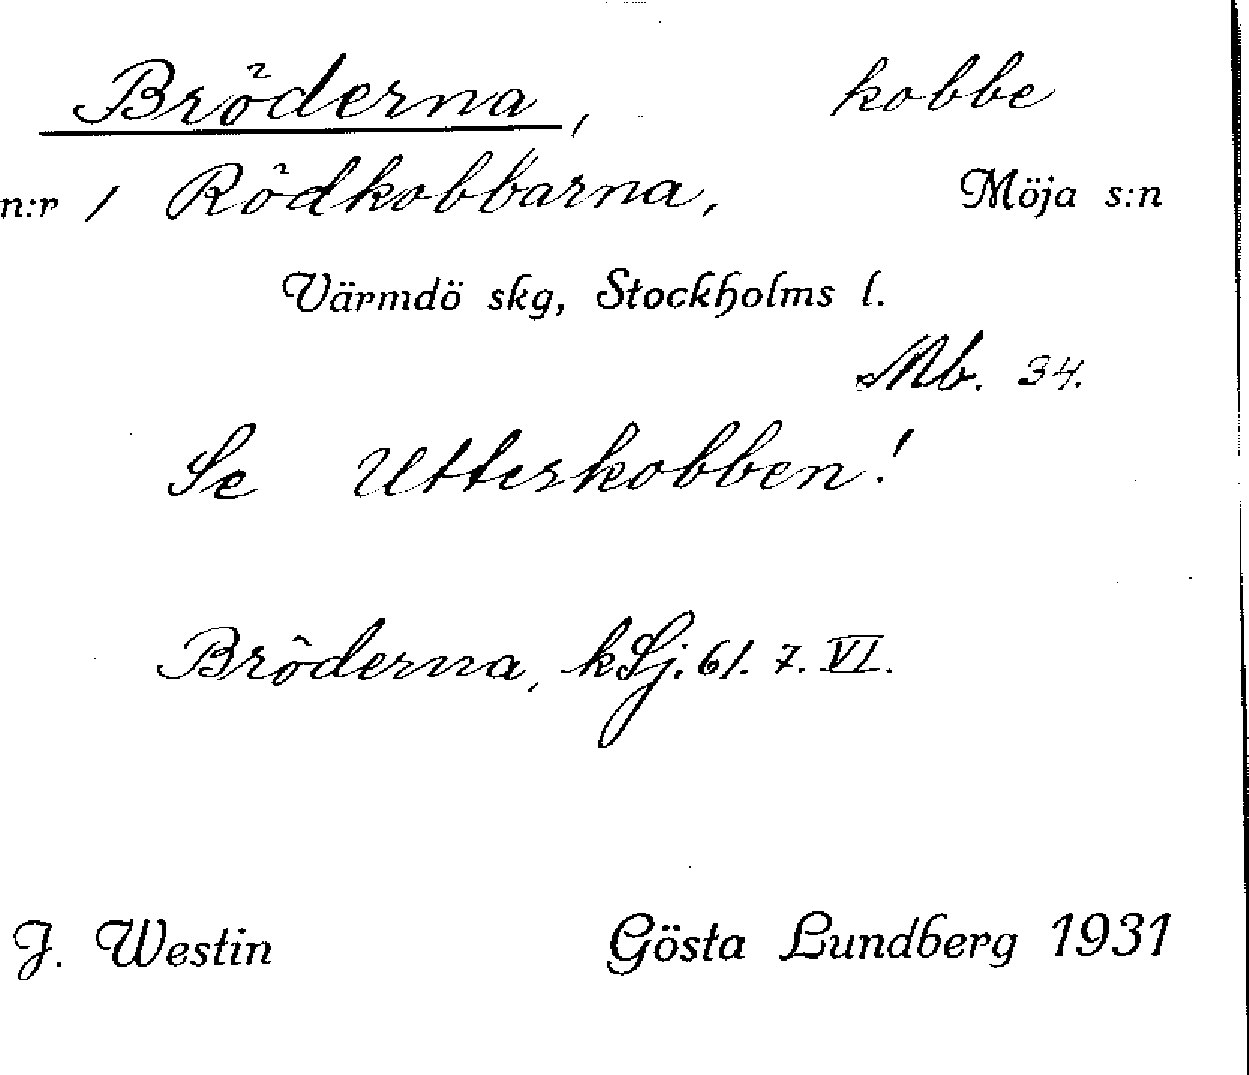 Bröderna, kobbe
n:r 1 Rödkobbarna, Möja s:n
Värmdö skg, Stockholms l.
Mb. 34.
Se Utterkobben!
Bröderna, k Sj. 61. 7. VI.
J. Westin Gösta Lundberg 1931